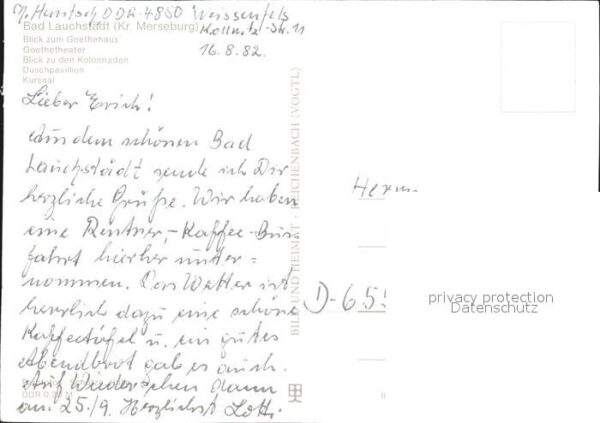 DDR-4850 Weissenfels
Bad Lauchstädt (Kr. Merseburg)
Kollwitz-Str. 11
Blick zum Goethehaus
Goethetheater
16.8.82.
Blick zu den Kolonnaden
Duschpavillion
Kursaal
Lieber Erich!
Aus dem schönen Bad
Lauchstädt sende ich Dir
herzliche Grüße. Wir haben
eine Rentner-Kaffee-Bus
fahrt hierher unter=
nommen. Das Wetter ist
herrlich dazu eine schöne
Kaffeetafel u. ein gutes
Abendbrot gab es auch.
Auf Wiedersehen dann
am 25./9. Herzlichst Lotti.
DDR 0,20 M
BILD UND HEIMAT · REICHENBACH (VOGTL)
Herrn
D-655
privacy protection
Datenschutz